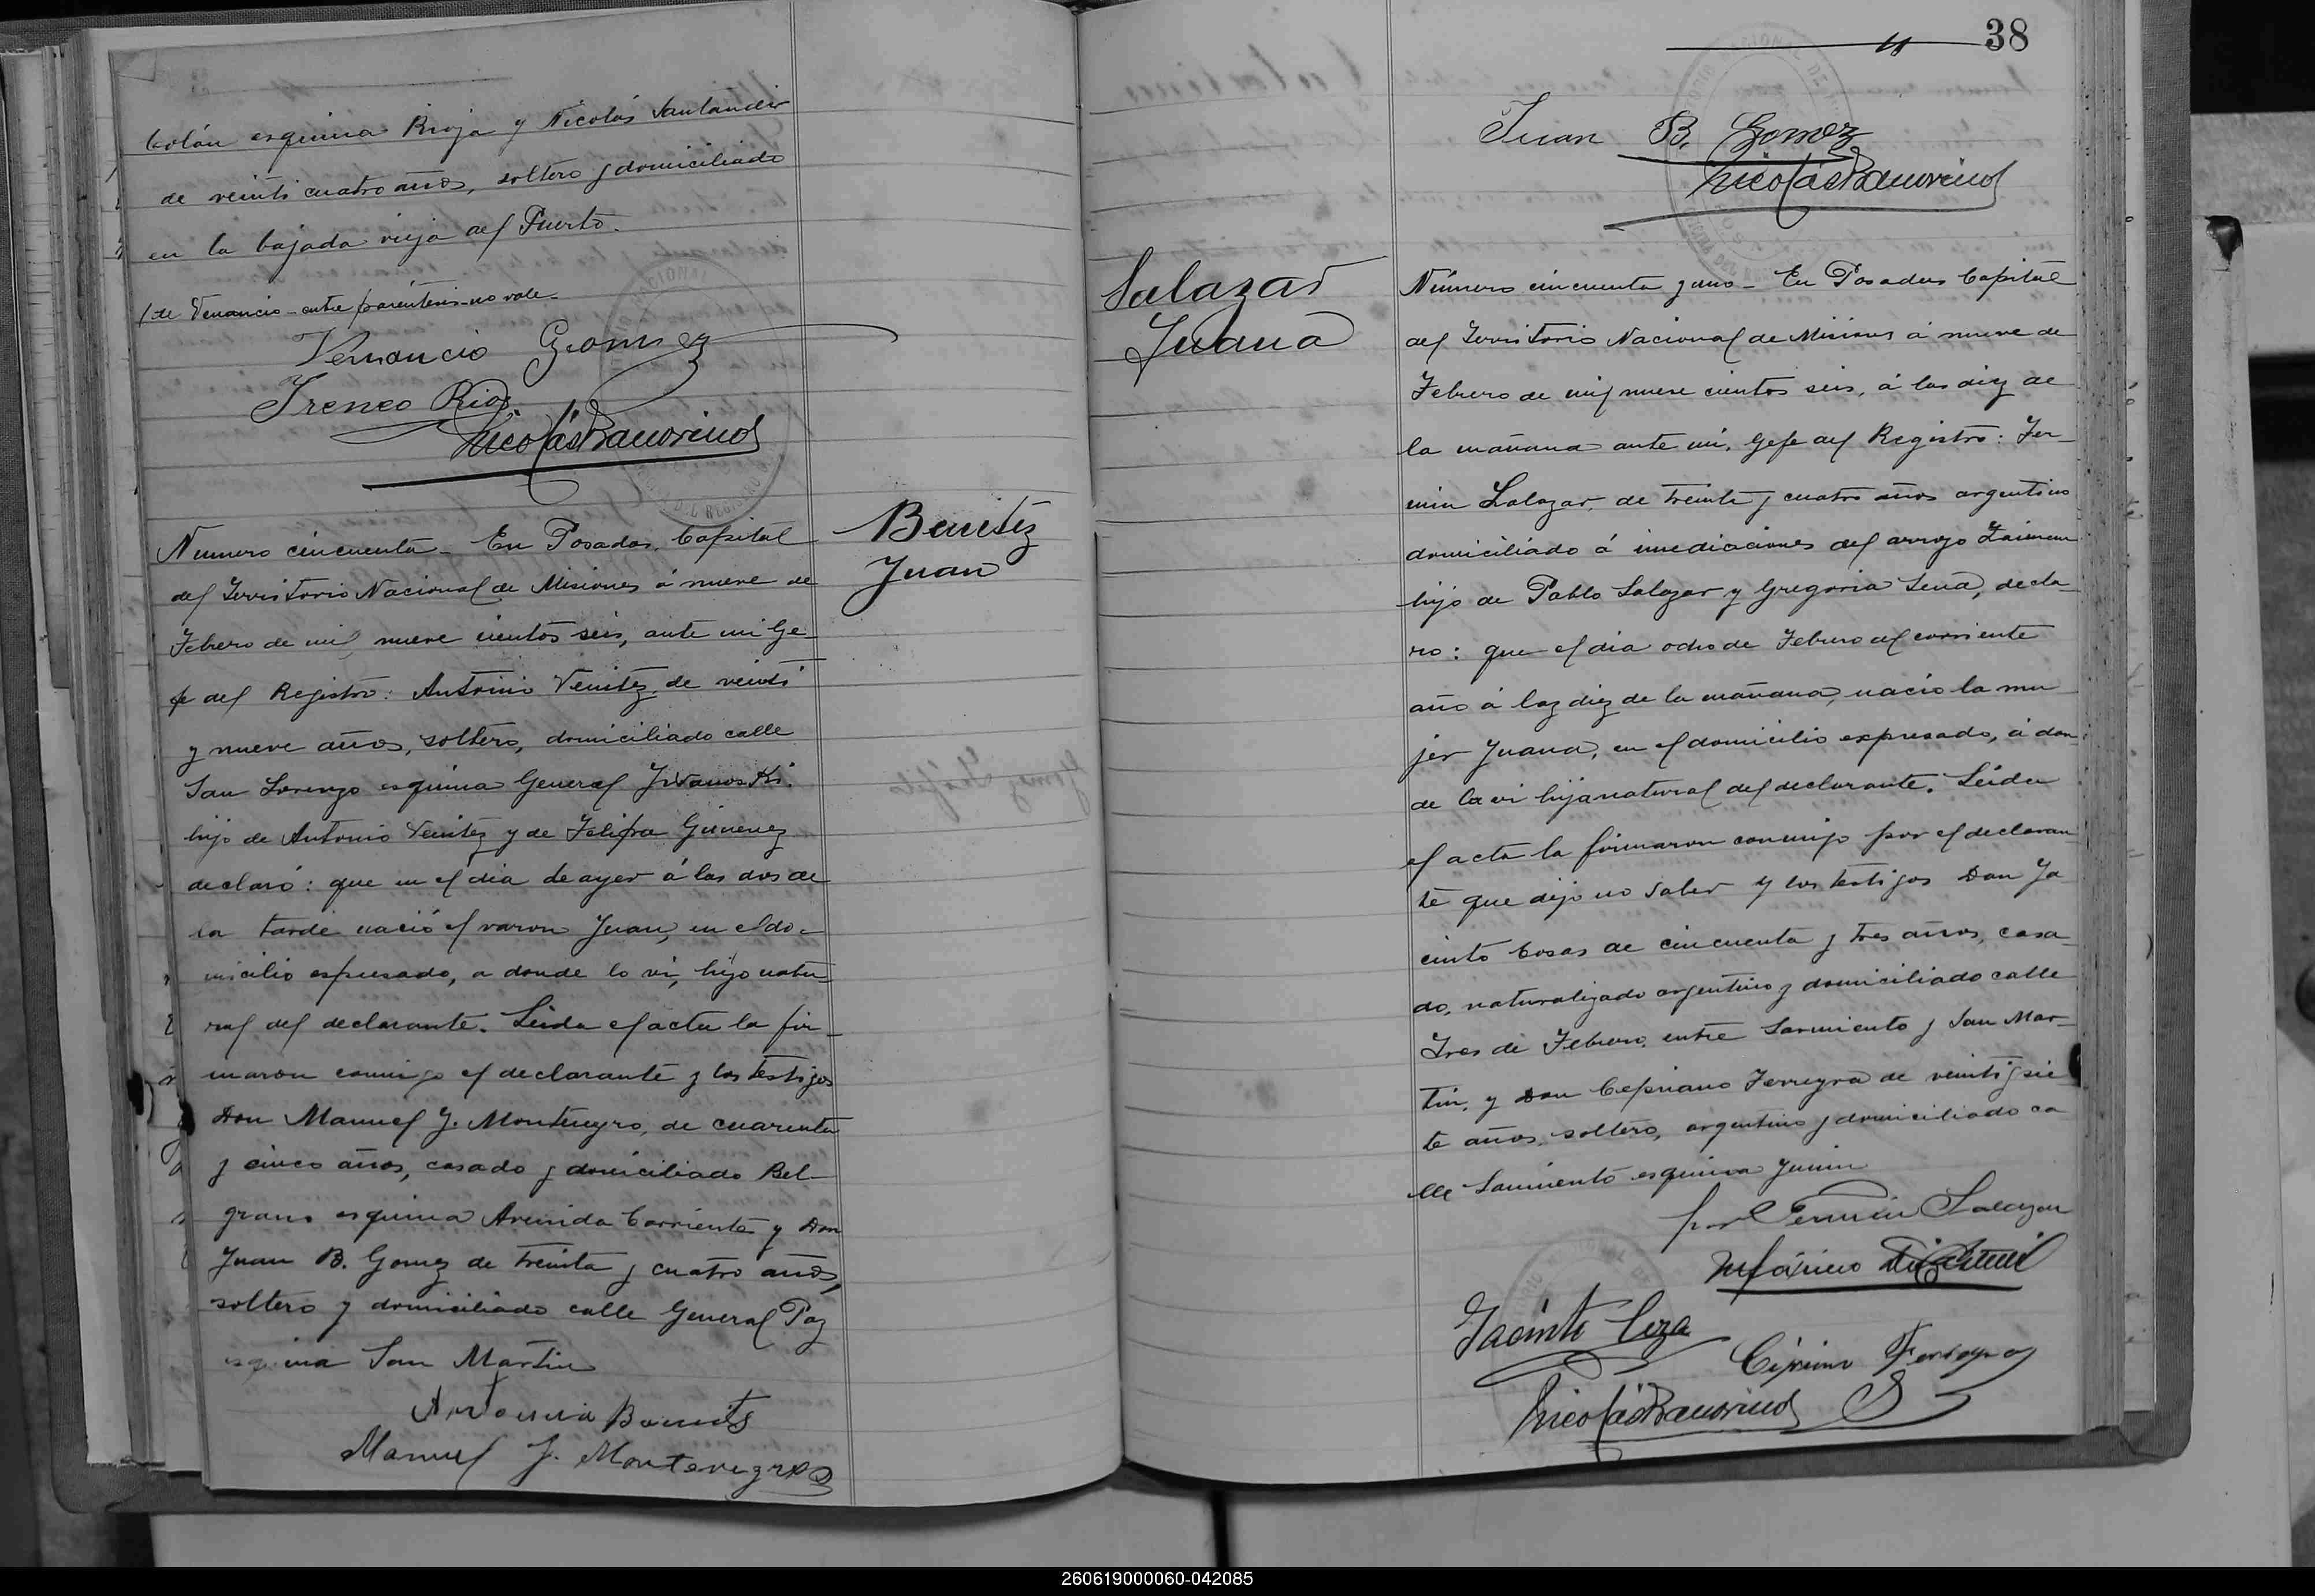 Colón esquina Rioja y Nicolás Santander
de veinti cuatro años, soltero y domiciliado
en la bajada vieja del Puerto.
de Venancio - entre paréntesis - no vale -
Venancio Gomez
Ireneo Rios
Benitez
Juan
Numero cincuenta - En Posadas, Capital
del Territorio Nacional de Misiones á nueve de
Febrero de mil nueve cientos seis, ante mi Ge-
fe del Registro: Antonio Venitez, de veinti
y nueve años, soltero, domiciliado calle
San Lorenzo esquina General
hijo de Antonio Venitez y de Felipa Gimenez
declaró: que en el dia de ayer á las dos de
la tarde nació el varon Juan, en el do-
micilio espresado, a donde lo vi, hijo natu-
ral del declarante. Leida el acta la fir-
maron conmigo el declarante y los testigos
Don Manuel J. Montenegro, de cuarenta
y cinco años, casado y domiciliado Bel-
grano esquina Avenida Corrientes y Don
Juan B. Gomez de treinta y cuatro años,
soltero y domiciliado calle General Paz
esquina San Martin
Antonio Benites
Manuel J. Montenegro
38
Juan B. Gomez
Salazar
Juana
Número cincuenta y uno - En Posadas Capital
del Territorio Nacional de Misiones á nueve de
Febrero de mil nueve cientos seis, á las diez de
la mañana ante mi, Gefe del Registro: Fer-
min Salazar, de treinta y cuatro años argentino
domiciliado á inmediaciones del arroyo
hijo de Pablo Salazar y Gregoria Sena, decla-
ro: que el dia ocho de Febrero del corriente
año á las diez de la mañana, nacio la mu
jer Juana, en el domicilio expresado, á don-
de la vi hija natural del declarante. Leida
el acta la firmaron conmigo por el declaran
te que dijo no saber y los testigos Don Ja
cinto Cosas de cincuenta y tres años, casa-
do, naturalizado argentino y domiciliado calle
Tres de Febrero, entre Sarmiento y San Mar-
tin, y Don Cepriano Ferreyra de veinti y sie
te años, soltero, argentino y domiciliado ca
lle Sarmiento esquina Junin
por Fermin Salazar
Máximo
Jacinto
Cipriano Ferreyra
260619000060-042085